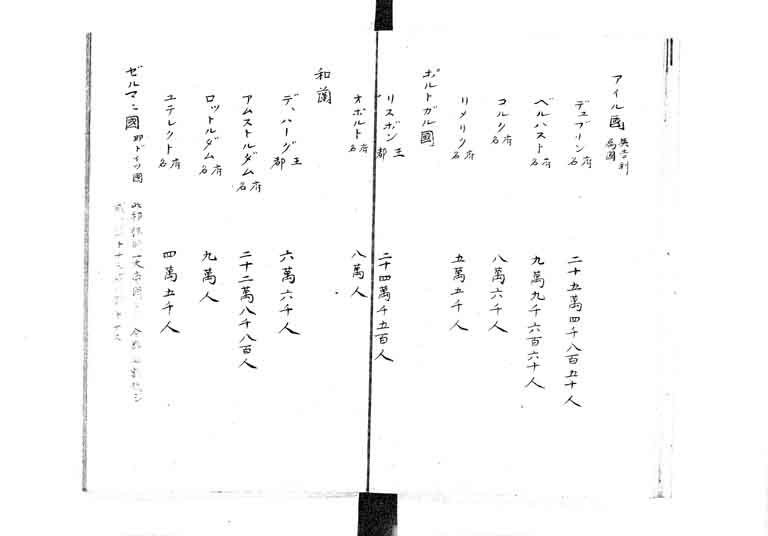 アイル國 英吉利属國
デュブリン 府名 二十五萬四千八百五十人
ベルハスト 府名 九萬九千六百六十人
コルク 府名 八萬六千人
リメリク 府名 五萬五千人
ポルトガル國
リスボン 王都 二十四萬千五百人
オポルト 府名 八萬人
和蘭
デ、ハーグ 王都 六萬六千人
アムストルダム 府名 二十二萬八千八百人
ロットルダム 府名 九萬人
ユテレクト 府名 四萬五千人
ゼルマニ國 即ドイツ國